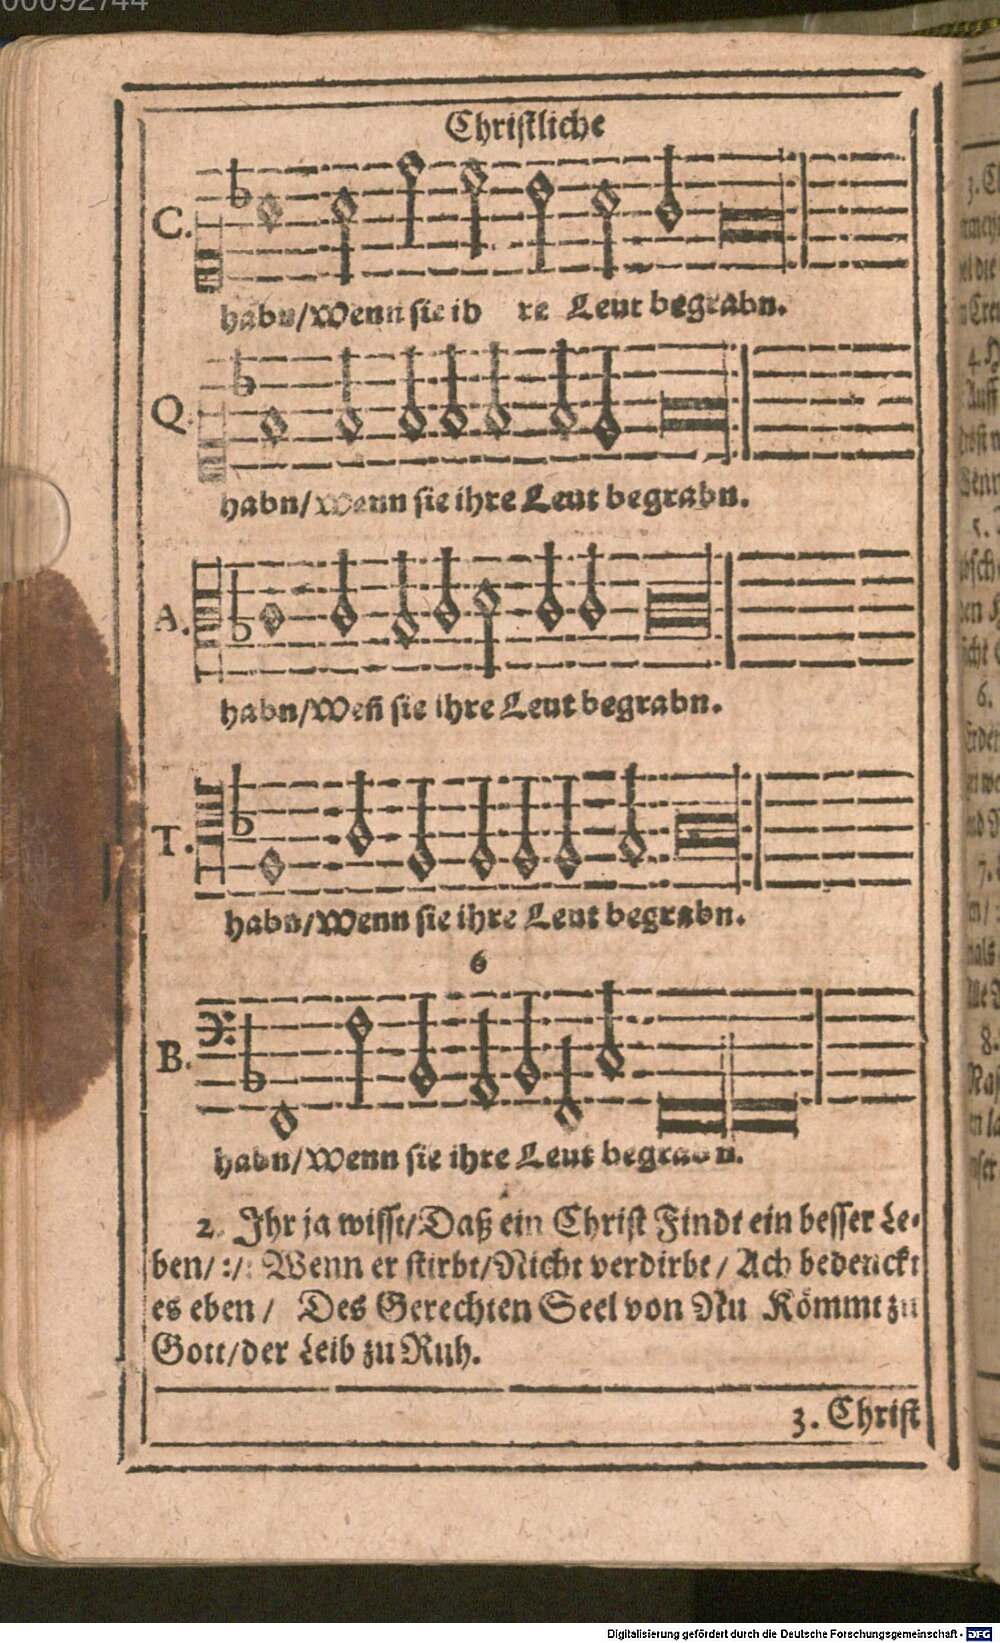 00092744
Christliche
C.
habn/Wenn sie ih re Leut begrabn.
Q.
habn/Wenn sie ihre Leut begrabn.
A.
habn/Weñ sie ihre Leut begrabn.
T.
habn/Wenn sie ihre Leut begrabn.
6
B.
habn/Wenn sie ihre Leut begrabn.
2. Ihr ja wisst/Daß ein Christ Findt ein besser Le-
ben/:/: Wenn er stirbt/Nicht verdirbt/Ach bedenckt
es eben/ Des Gerechten Seel von Nu Kömmt zu
Gott/der Leib zu Ruh.
3. Christ
Digitalisierung gefördert durch die Deutsche Forschungsgemeinschaft - DFG